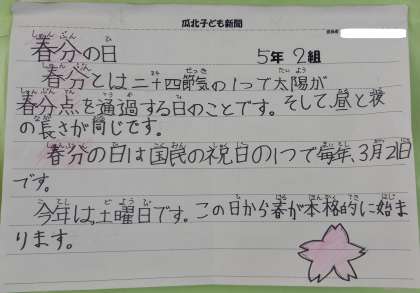 瓜北子ども新聞
春分の日
5年 2組
春分とは二十四節気の1つで太陽が
春分点を通過する日のことです。そして、昼と夜
の長さが同じです。
春分の日は国民の祝日の1つで毎年、3月21日
です。
今年は。土曜日です。この日から春が本格的に始ま
ります。